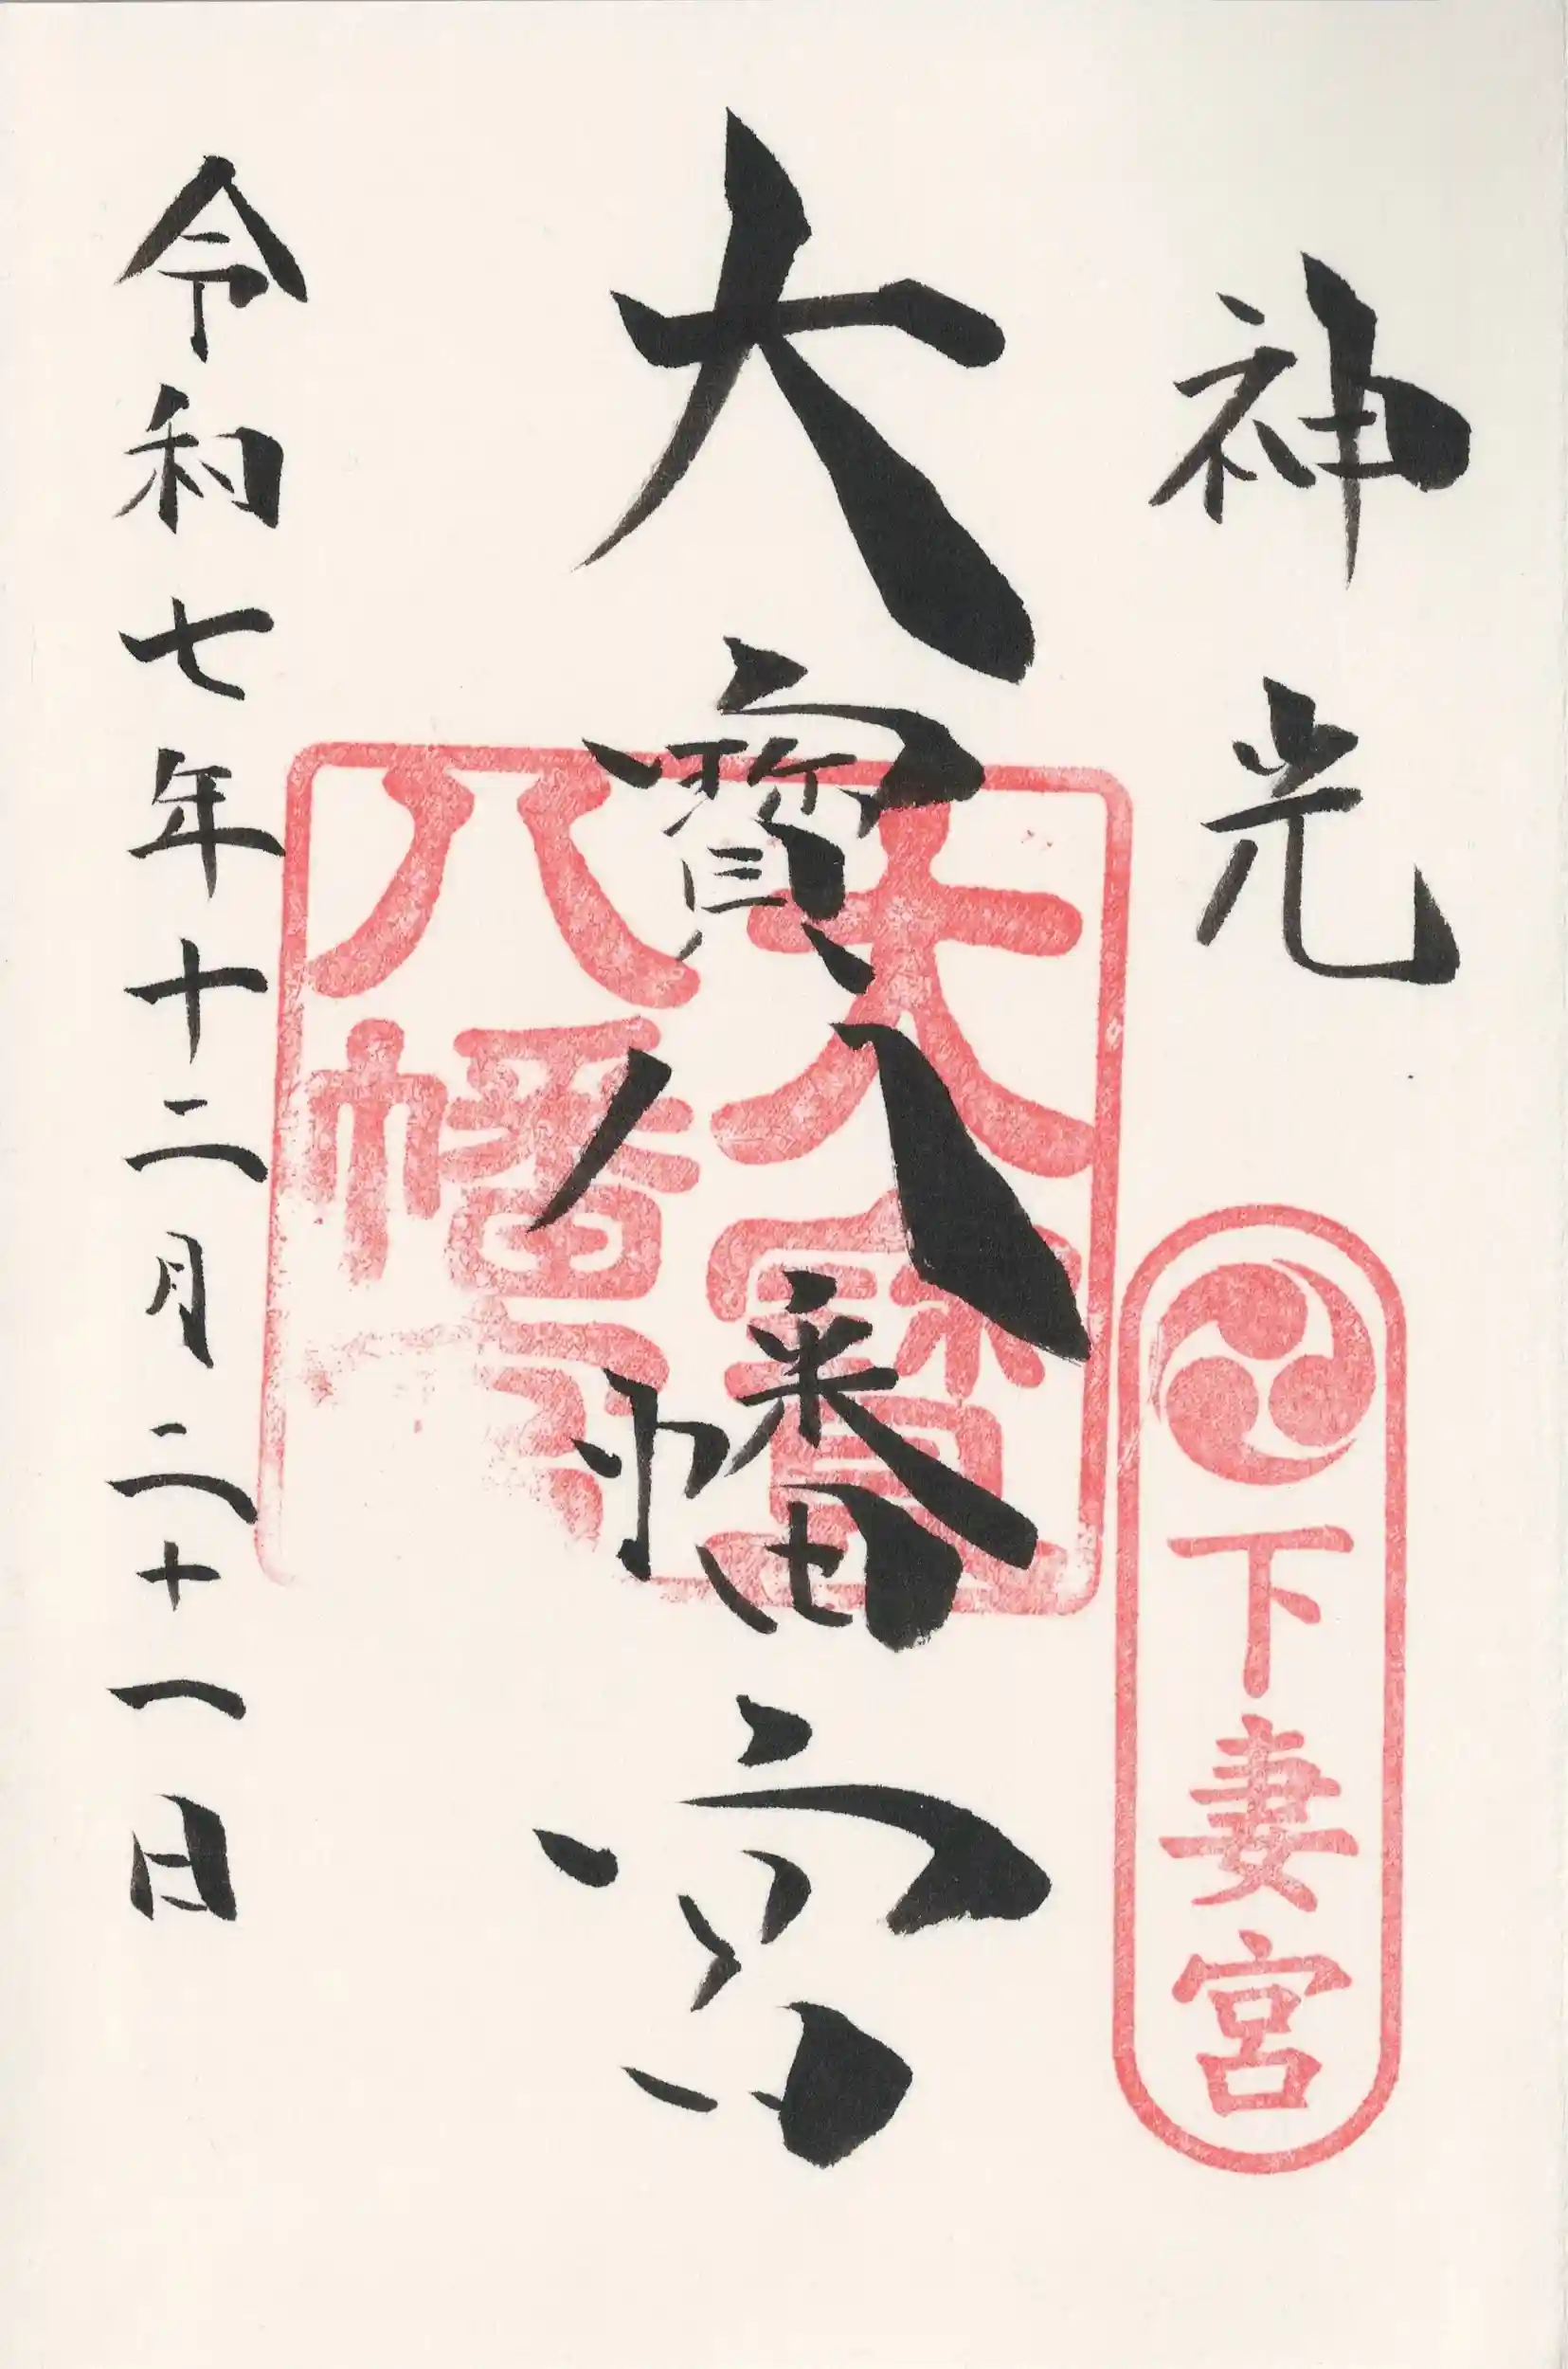 神光
下妻宮
大寳八幡宮
大寳
八幡宮
令和七年十二月二十一日